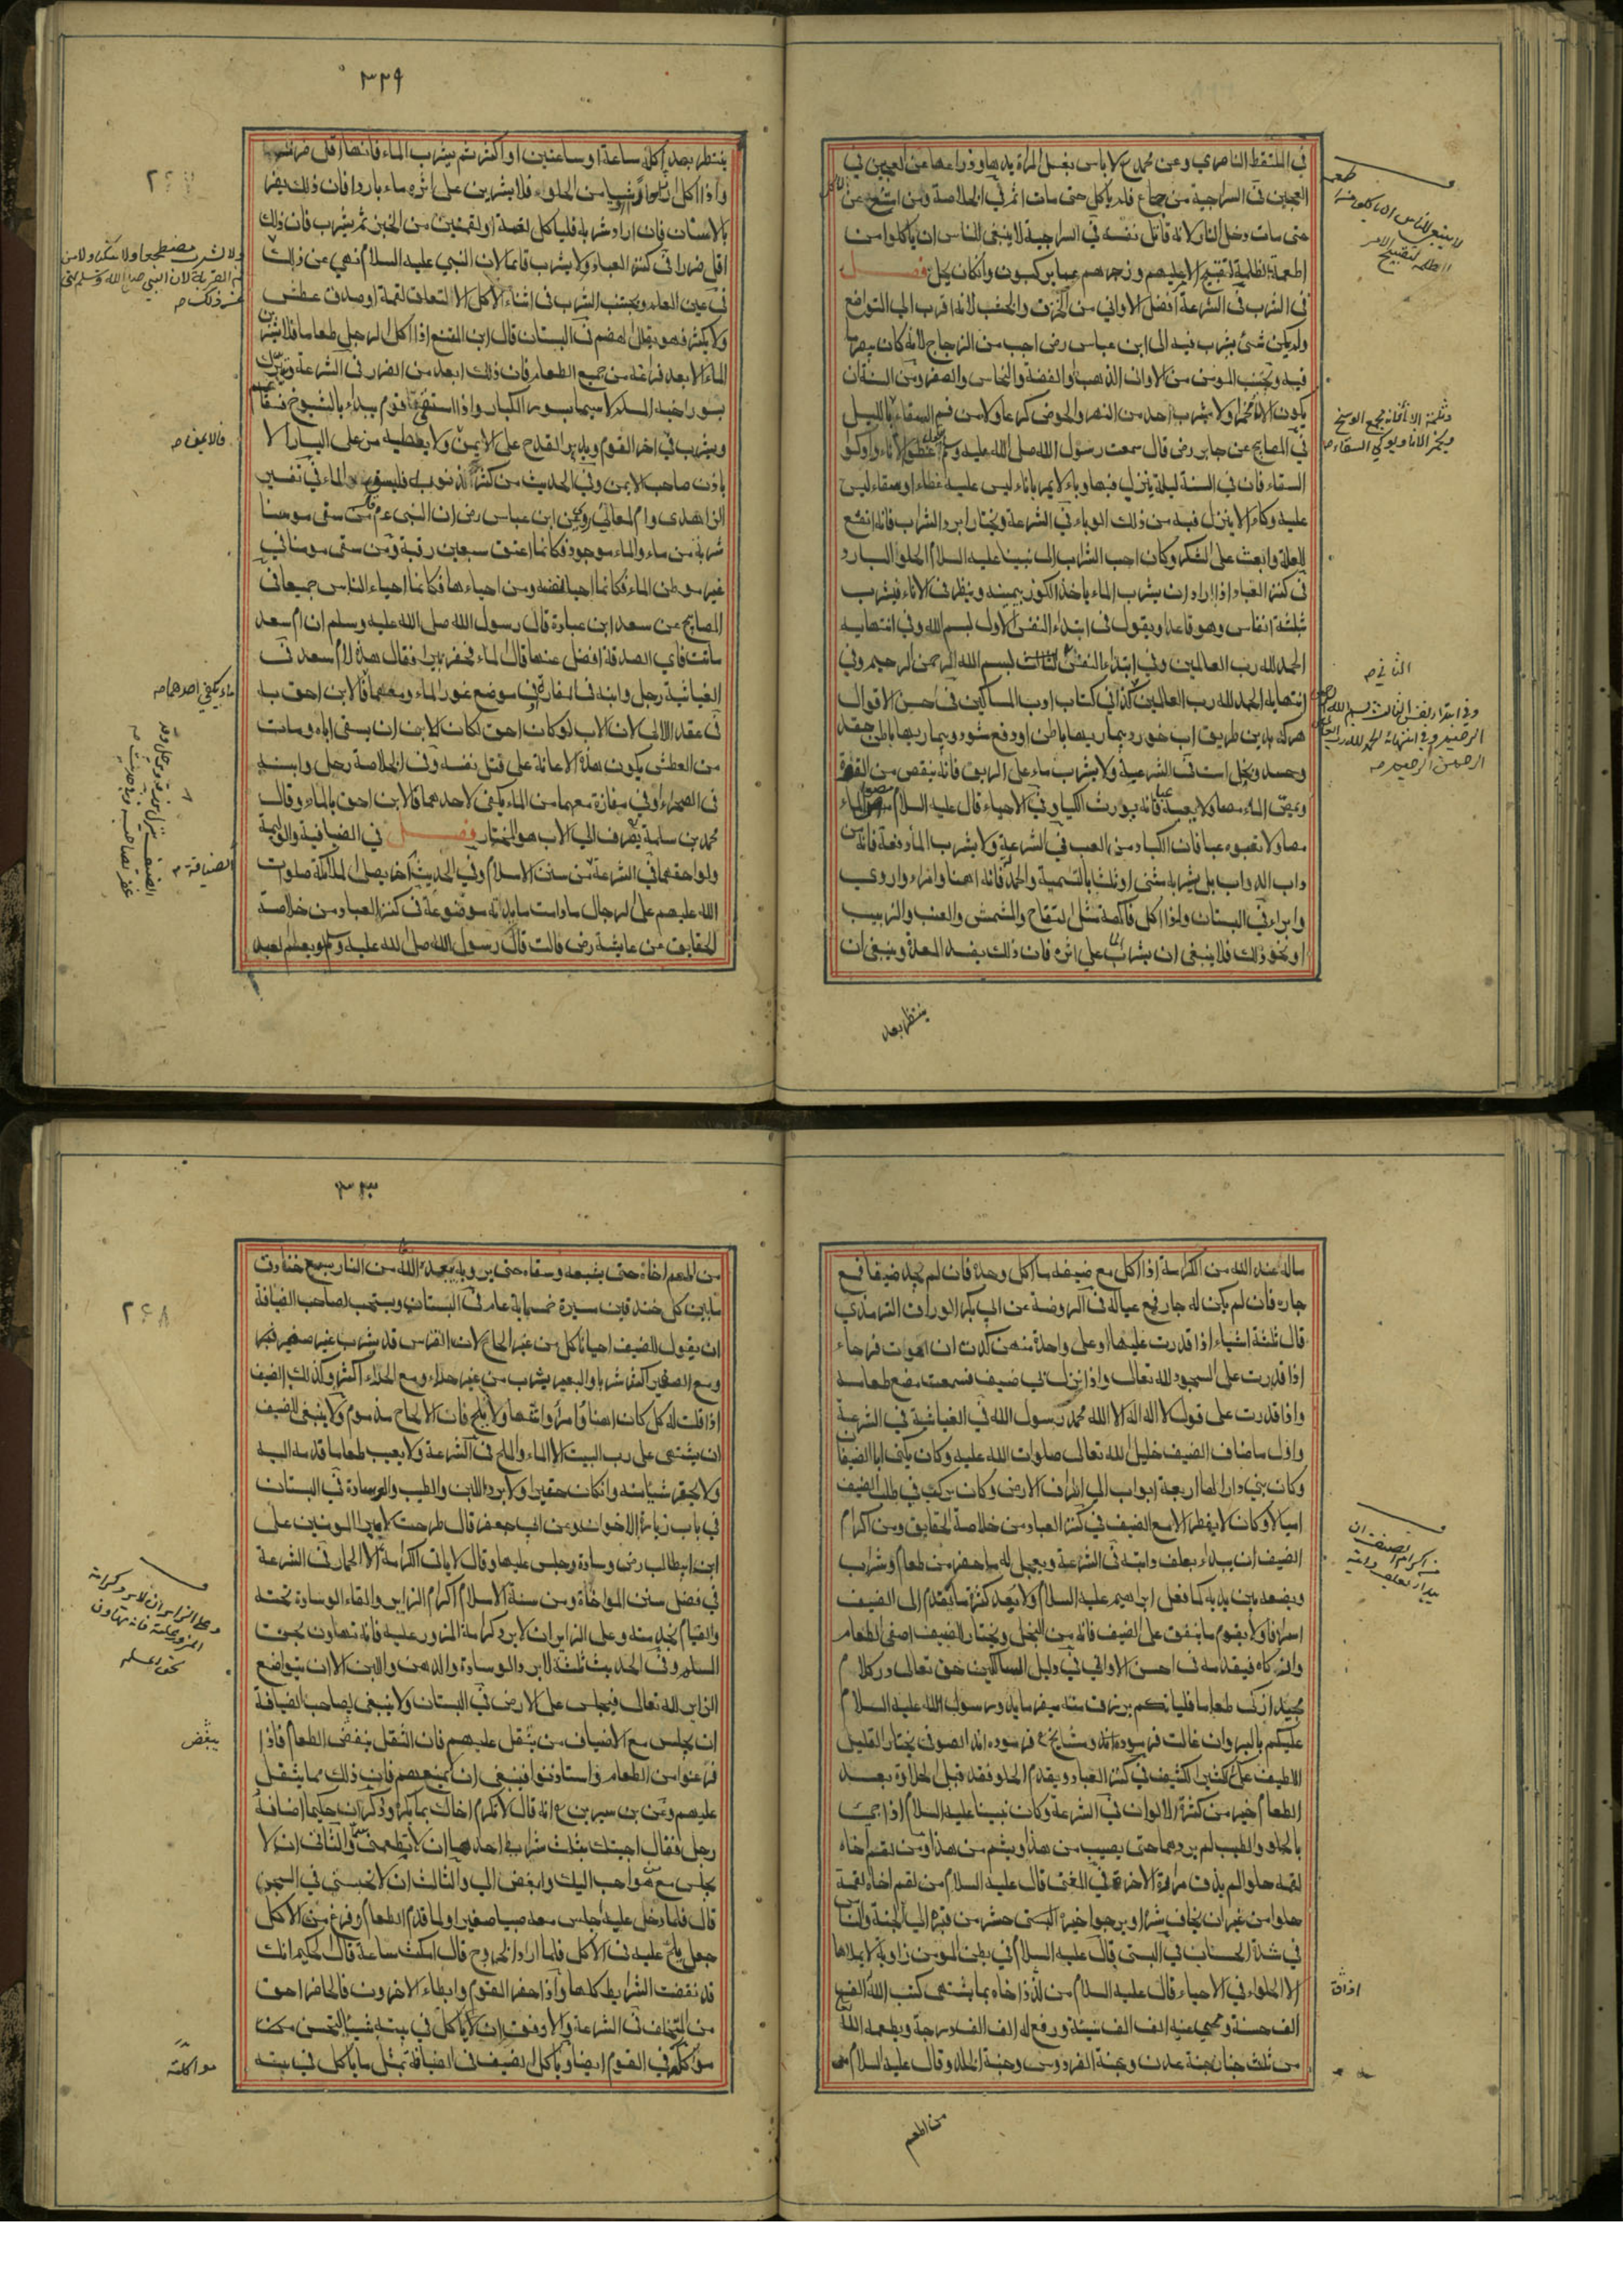 في الملتقط الناصري وعن محمد ع لا باس بغسل المراة يديها وذراعها من العجين في
العجين في السراجية من جاع فلم ياكل حتى مات اثم في الخلاصة ومن امتنع عن
حتى مات دخل النار لانه قاتل نفسه في السراجية لا ينبغي للناس ان ياكلوا من
اطعمة الظلمة لتقبيح الامر عليهم وزجرهم عما يركبون وان كان يحل فصل
في الشرب في الشرعة افضل الاواني من الخزف والخشب لانه اقرب الى التواضع
ولم يكن شئ يشرب فيه الى ابن عباس رض احب من الزجاج لانه كان يبصر ما
فيه ويجتنب المومن من الاواني الذهب والفضة والنحاس والصفر ومن السنة ان
يكون الاناء مخمرا ولا يشرب احد من النهر والحوض كرعا ولا من فم السقاء بالليل
في المصابيح عن جابر رض قال سمعت رسول الله صلى الله عليه وسلم يقول غطوا الاناء واوكوا
السقاء فان في السنة ليلة ينزل فيها وباء لا يمر باناء ليس عليه غطاء او سقاء ليس
عليه وكاء الا ينزل فيه من ذلك الوباء في الشرعة ويختار ابرد الشراب فانه انفع
للعلة وابعث على الشكر وكان احب الشراب الى نبينا عليه السلام الحلو البارد
في كنز العباد اذا اراد ان يشرب الماء ياخذ الكوز بيمينه وينظر في الاناء فيشرب
بثلثة انفاس وهو قاعد ويقول في ابتداء النفس الاول بسم الله وفي انتهايه
الحمد لله رب العالمين وفي ابتداء النفس الثالث بسم الله الرحمن الرحيم وفي
انتهايه الحمد لله رب العالمين كذا في كتاب ادب المساكين في احسن الاقوال
هركه بدين طريق اب خورد بيماريهاء باطن او دفع شود وبيماريهاء باطن حقد
وحسد وبخل است في الشرعية ولا يشرب ماء على الريق فانه ينقص من القوة
ويمص الماء مصا ولا يعبه عبا فانه يورث الكباد في الاحياء قال عليه السلام مصوا الماء
مصا ولا تعبوه عبا فان الكباد من العب في الشرعة ولا يشرب الماء دفعة فانه من
داب الدواب بل يشربه مثنى او ثلث بالتسمية والحمد فانه اهنا وامراء واروي
وابراء في البستان واذا اكل فاكهة مثل التفاح والمشمش والعنب والزبيب
او نحو ذلك فلا ينبغي ان يشرب الماء على اثره فان ذلك يفسد المعدة وينبغي ان
ينتظر بعد
لا ينبغي للناس ان ياكلوا من
الظلمة لتقبيح الامر
ويخمر الاناء ويوكي السقاء صح
الثاني صح
وفي ابتداء نفس الثالث بسم الله
الرحيم وفي انتهائه الحمد لله رب العالمين
الرحمن الرحيم صح
٣٢٩
ينتظر بعد اكله ساعة او ساعتين او اكثر ثم يشرب الماء فانها اقل ضررا
واذا اكل او شيا من الحلواء فلا يشربن على اثره ماء باردا فان ذلك يضر
بالاسنان فان اراد شربه فلياكل لقمة او لقمتين من الخبز ثم يشرب فان ذلك
اقل ضررا في كنز العباد ولا يشرب قائما لان النبي عليه السلام نهي عن ذلك
في عين العلم ويجتنب الشرب في اثناء الاكل الا لتعلق لقمة او صدق عطش
ولا يكثر فهو يقلل الهضم في البستان قال ابن المقنع اذا اكل الرجل طعاما فلا يشرب
الماء الا بعد فراغه من جميع الطعام فان ذلك ابعد من الضرر في الشرعة ويتبرك
بسور اخيه المسلم لا سيما بسور الكبار واذا استسقى قوم يبداء بالشيوخ
ويشرب في اخر القوم ويدير القدح على الايمن ولا يعطيه من على اليسار الا
باذن صاحب الايمن وفي الحديث من كثر ذنوبه فليسق الماء في تفسير
الزاهدي وام المعاني روى عن ابن عباس رض ان النبي ءم قال من سقى مومنا
شربة من ماء والماء موجود فكانما اعتق سبعين رقبة ومن سقى مومنا في
غير موطن الماء فكانما احيا نفسه ومن احياءها فكانما احياء الناس جميعا في
المصابيح عن سعد ابن عبادة قال رسول الله صلى الله عليه وسلم ان ام سعد
ماتت فاي الصدقة افضل عنها قال الماء فحفر بيرا وقال هذه لام سعد في
الغياثية رجل وابنه في المفازة في موضع غور الماء ومعهما فالابن احق به
في عقد اللالي لان الاب لو كان احق لكان كلابن ان يسقي اباه ومات
من العطش يكون هذه الاعانة على قتل نفسه وفي الخلاصة رجل وابنه
في الصحراء وفي مفازة معهما من الماء يكفي لاحدهما فالابن احق بالماء وقال
محمد بن سلمة يصرف الى الاب هو المختار فصل في الضيافية والوليمة
ولواحقهما في الشرعة من سنن الاسلام وفي الحديث اخر يصل الملائكة صلوات
الله عليهم على الرجال ما دامت مايدته موضوعة في كنز العباد من خلاصة
الحقايق من عايشة رض قالت قال رسول الله صلى الله عليه وسلم لو يعلم لعبد
ولا يشرب مضطجعا ولا متكئا ولا من
فم القربة لان النبي صلى الله عليه وسلم نهى
عن ذلك صح
فالايمن صح
ماء يكفي احدهما صح
الضيافة صح
ماله عند الله من الكرامة اذا اكل مع ضيفه ما اكل وحده فان لم يجد ضيفا فمع
جاره فان لم يكن له جار فمع عياله في الروضة عن ابي بكر الوراق الترمذي
قال ثلثة اشياء اذا قدرت عليها او على واحدة منهن كدت ان اموت فرحاء
اذا قدرت على السجود لله تعالى واذا نزل بي ضيف فسمعت مضغ طعامه
واذا قدرت على قول لا اله الا الله محمد رسول الله في الغياثية في الشرعة
واول ما ضاف الضيف خليل الله تعالى صلوات الله عليه وكان يكنى ابا الضيفان
وكان بنى دارا لها اربعة ابواب الى اطراف الارض وكان يركب في طلب الضيف
اميالا وكان لا يفطر الا مع الضيف في كنز العباد من خلاصة الحقايق ومن اكرام
الضيف ان يبداء بعلف دابته في الشرعية ويعجل له ما حضر من طعام وشراب
ويضعه بين يديه كما فعل ابراهيم عليه السلام ولا يعد كثرة ما يقدم الى الضيف
اسرافا ولا يقوم ما ينفق على الضيف فانه من البخل ويختار للضيف اصفى الطعام
وازكاه فيقدمه في احسن الاواني في دليل السالكين حق تعالى در كلام
مجيد ازكى طعاما فلياتكم برزق منه ميفرمايد ورسول الله عليه السلام
عليكم بالبر وان غالت فرموده اند ومشايخ ع فرموده اند الصوفي يختار القليل
اللطيف على الكثير الكثيف في كنز العباد ويقدم الحلو فقد قيل الحلاوة بعد
الطعام خير من كثرة الالوان في الشرعة وكان نبينا عليه السلام اذا جئ
بالحلو والطيب لم يردهما حتى يصيب من هذا ويشم من هذا ومن لقم اخاه
لقمة حلو الم يذق مرارة الاخرة في المغني قال عليه السلام من لقم اخاه لقمة
حلوا من غير ان يخاف شرا او يرجوا خيرا
في شدة الحساب في البستى قال عليه السلام في بطن المومن زاوية لا يملاها
الا الحلواء في الاحياء قال عليه السلام من لذذ اخاه بما يشتهى كتب الله الف الف
الف حسنة ومحى عنه الف الف سيئة ورفع له الف الف درجة ويطعمه الله
من ثلث جنان جنة عدن وجنة الفردوس وجنة الخلد وقال عليه السلام من
من اطعم
من اكرام الضيف ان
يبداء بعلف دابته
اذاق
٣٣٠
من اطعم اخاه حتى يشبعه وسقاه حتى يرويه بعده الله من النار سبع خنادق
ما بين كل خندقين مسيرة خمسماية عام في البستان ويستحب لصاحب الضيافة
ان يقول للضيف احيانا كل من غير الحاح لان الفرس قد يشرب بغير صفير
ومع الصفير اكثر شربا والبعير يشرب من غير حداء ومع الحداء اكثر وكذلك الضيف
اذا قلت له كل كان اهناء وامراء ولا يلح فان الالحاح مذموم ولا ينبغي للضيف
ان يشتهى على رب البيت الا الماء والملح في الشرعة ولا يعيب طعاما قدمه اليه
ولا يحقر شيا منه وان كان حقيرا ولا يرد اللبن والطيب والوسادة في البستان
في باب زيارة الاخوان وعن ابي جعفر قال طرحت لامير المومنين على
ابن ابيطالب رض وسادة وجلس عليها وقال لا ياب الكرامة الا الحمار في الشرعة
في فصل سنن المواخاة ومن سنة الاسلام اكرام الزاير والقاء الوسادة تحته
والقيام بخدمته وعلى الزاير ان لا يرد كرامة المزور عليه فانه تهاون بحق
المسلم وفي الحديث ثلثة لا يرد الوسادة والدهن واللبن الا ان يتواضع
الزاير لله تعالى فيجلس على الارض في البستان ولا ينبغي لصاحب الضيافة
ان يجلس مع الاضياف من يثقل عليهم فان الثقل ينغض الطعام فاذا
فرغوا من الطعام واستاذنوا فينبغي ان لا يمنعهم فان ذلك مما يثقل
عليهم وعن بن سيرين ع انه قال لا تكرم اخاك بما يكره وذكر ان حكيما اضافه
رجل فقال اجيبك بثلث شرايط احدها ان لا تطعمني سما والثاني ان لا
يجلس مع من هو احب اليك وابغض الي والثالث ان لا تحبسني في السجن
قال فلما دخل عليه جلس معه صبيا صغيرا ولما قدم الطعام وفرغ من الاكل
جعل يلح عليه في الاكل فلما اراد الخروج قال امكث ساعة قال الحكيم انك
قد نقضت الشرايط كلها واذا حضر القوم وابطاء الاخرون فالحاضر احق
من المتخلف في الشرعة والاوفق ان لا ياكل في بيته شيا
في القوم ايضا وياكل الضيف في الضيافة بمثل ما ياكل في بيته
وعلى الزاير ان لا يرد كرامة
المزور عليه فانه تهاون
بحق المسلم
ينغض
مواكلته
٢٦٨